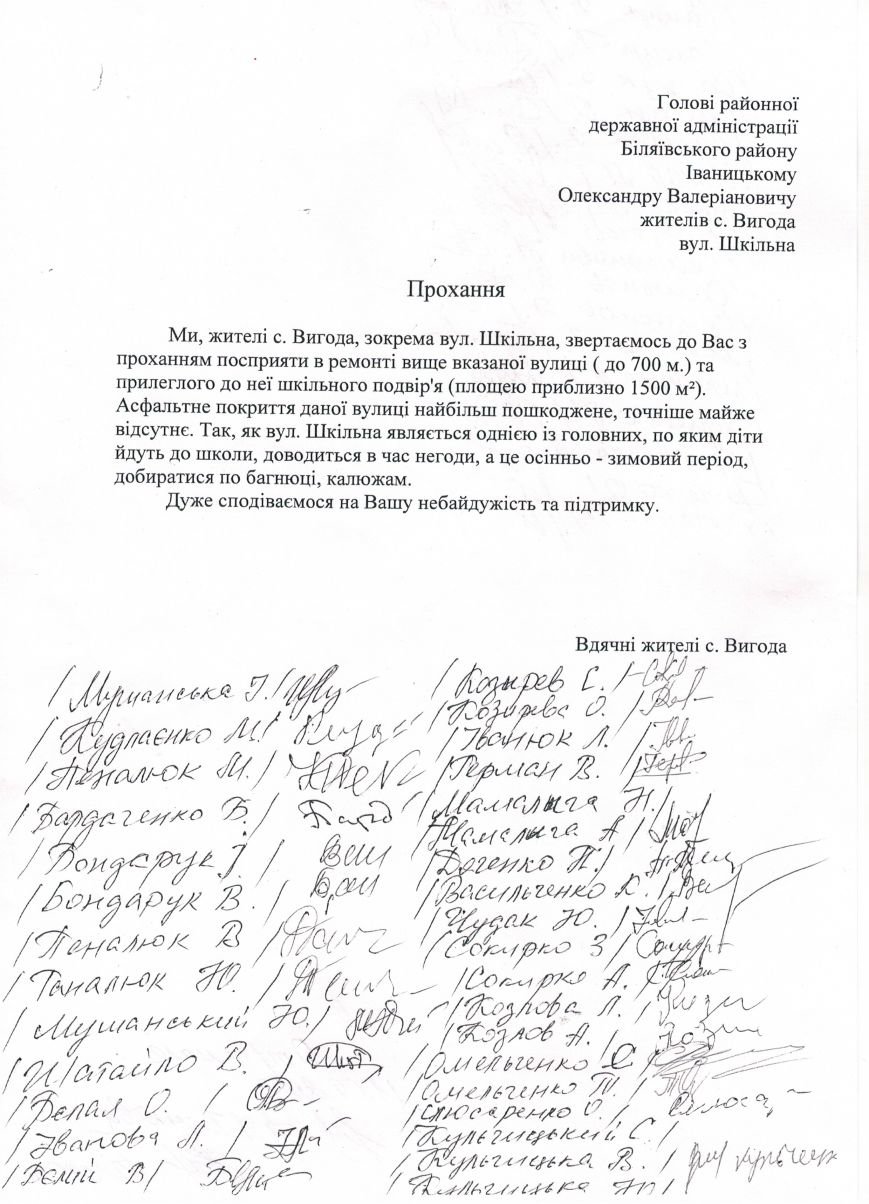 Голові районної
державної адміністрації
Біляївського району
Іваницькому
Олександру Валеріановичу
жителів с. Вигода
вул. Шкільна
Прохання
Ми, жителі с. Вигода, зокрема вул. Шкільна, звертаємось до Вас з
проханням посприяти в ремонті вище вказаної вулиці ( до 700 м.) та
прилеглого до неї шкільного подвір'я (площею приблизно 1500 м²).
Асфальтне покриття даної вулиці найбільш пошкоджене, точніше майже
відсутнє. Так, як вул. Шкільна являється однією із головних, по яким діти
йдуть до школи, доводиться в час негоди, а це осінньо - зимовий період,
добиратися по багнюці, калюжам.
Дуже сподіваємося на Вашу небайдужість та підтримку.
Вдячні жителі с. Вигода
/
/Кудлаєнко М./
/Пеналюк М./
/Бардаченко Б./
/Бондарук І./
/Бондарук В./
/Пеналюк В /
/ Ю. /
/ Ю./
/Шатайло В. /
/ О. /
/Іванова Л. /
/Бєлий В/
/Козырев С. /
/Козирєва О. /
/Іванюк Л. /
/Герман В. /
/Мамалыга Н./
/Мамалыга А /
/Дяченко П./
/Васильченко К. /
/Чудак Ю. /
/Сокирко З /
/Сокирко А. /
/Козлова Л. /
/Козлов А. /
/Омельченко С /
/Омельченко Т. /
/Слюсаренко О. /
/Кульчицький С. /
/Кульчицька В. /
/Кульчицька Ю /